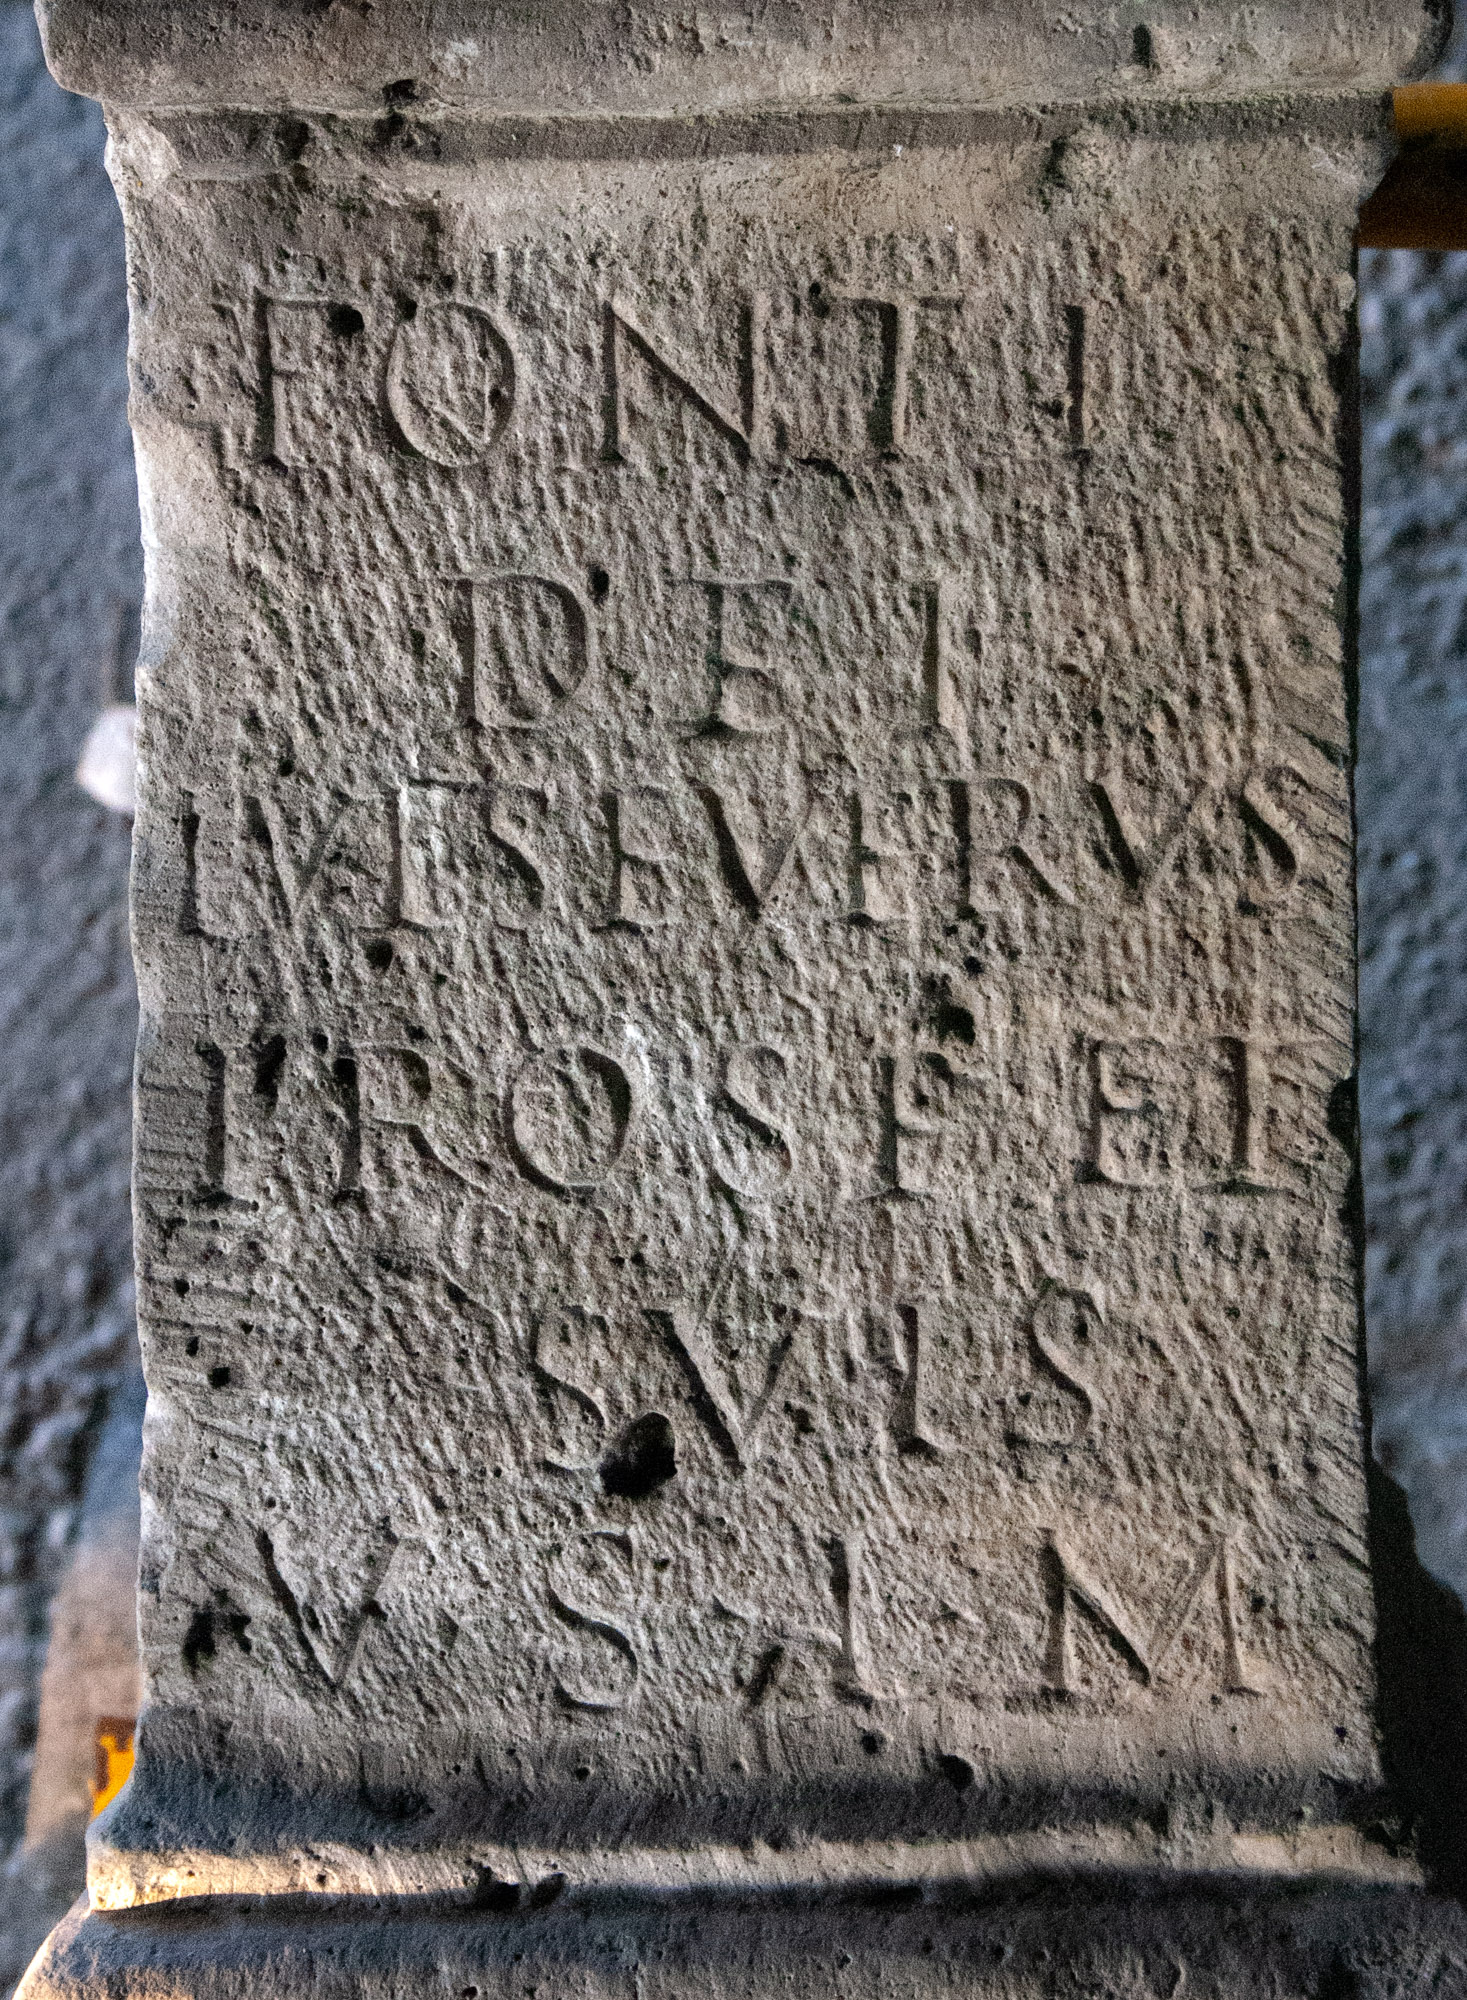 FONTI
DEI
IVL SEVERVS
PRO SE ET
SVIS
V S L M